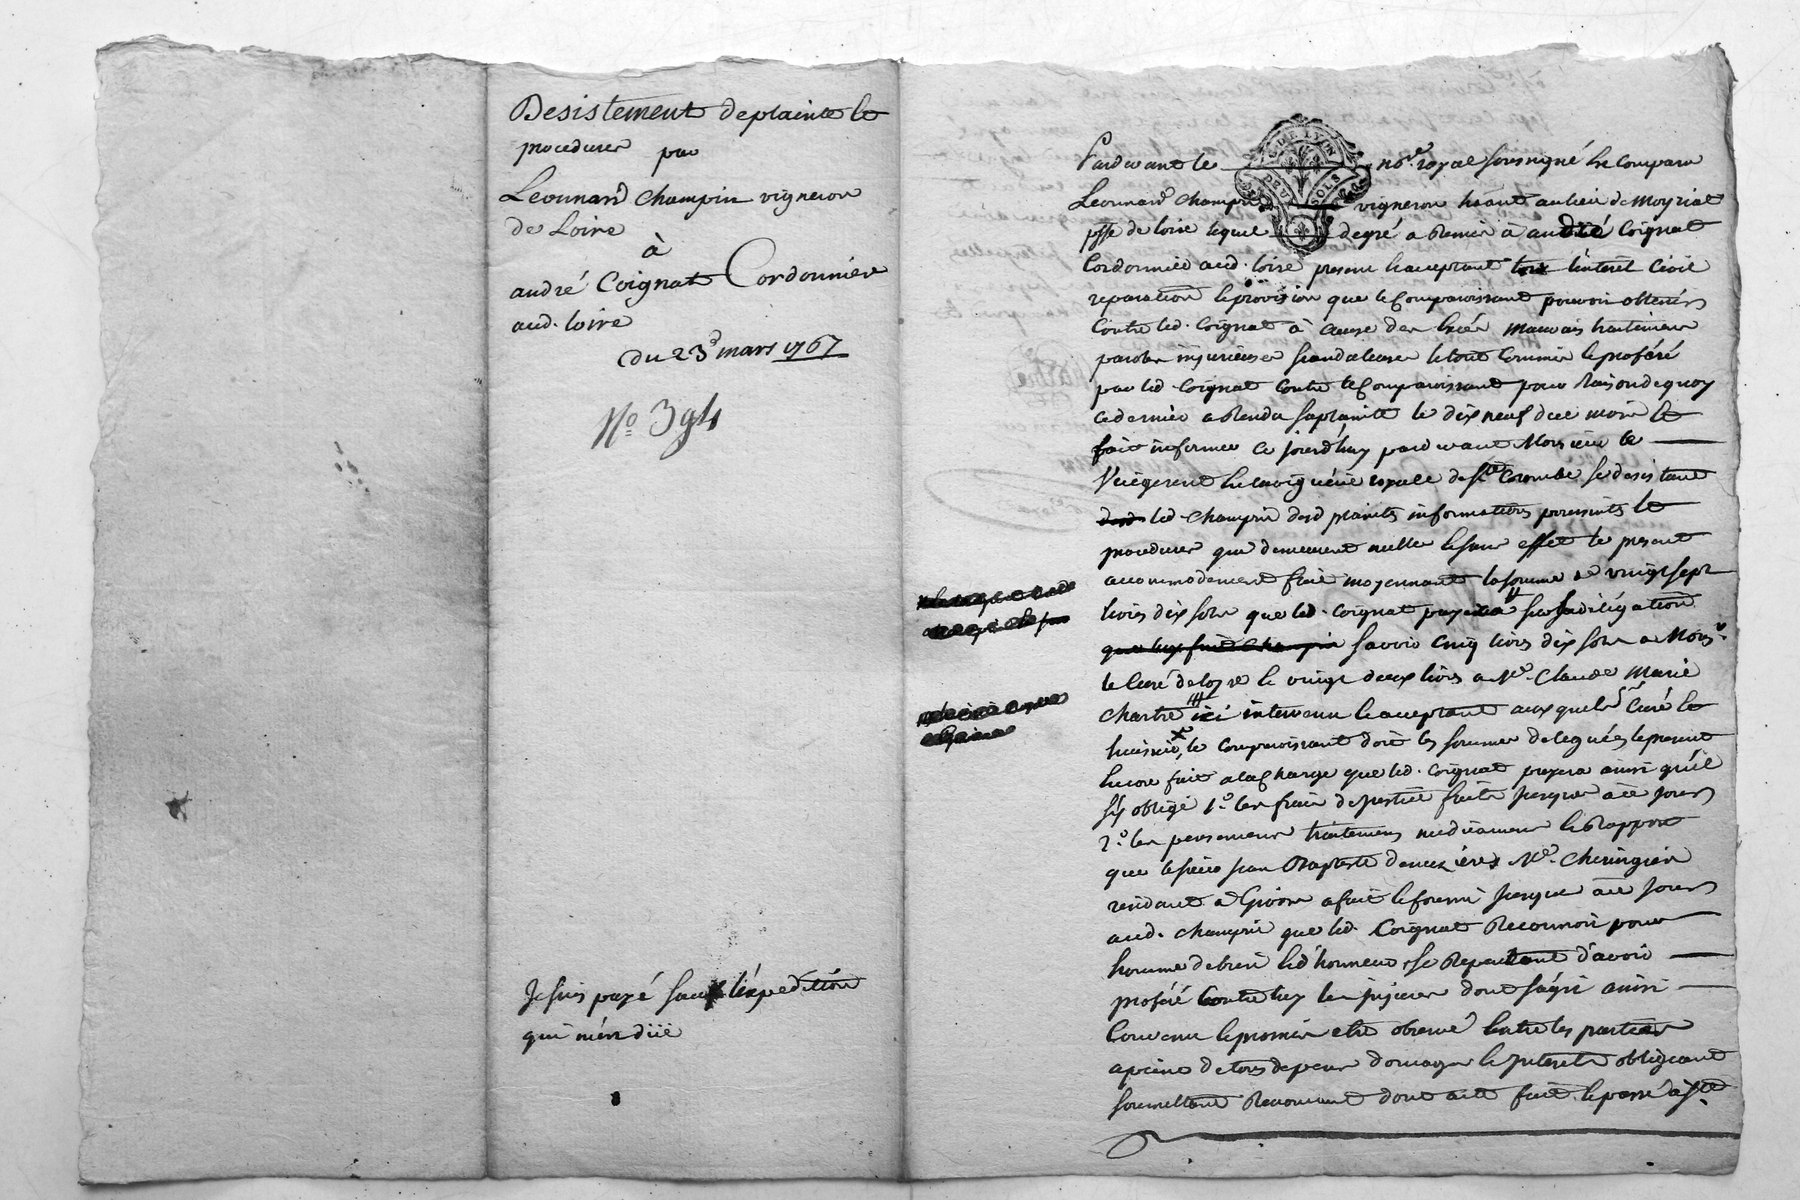 Desistement de plainte et
procedures par
Leonnard Champin vigneron
de Loire
à
andré Coignat Cordonnier
aud. loire
du 23 mars 1767
No 394
Je suis payé sauf l'éxpedition
qui m'en düe
G. DE LYON
DEUX SOLS
Pardevant le no.re royal soussigné est comparu
Leonnard Champin vigneron h.ant au lieu de Moyriat
psse de loire lequel de gré a Remis à andré Coignat
Cordonnier aud. loire present et acceptant tous l'interêt Civil
reparation et provision que le Comparoissant pouvoir obtenir
Contre led. Coignat à Cause des excés mauvais traitemens
paroles injurieuses scandaleuses le tout Commis et proféré
par led. Coignat Contre le Comparoissant pour Raison de quoy
ce dernier a Rendu sa plainte le dix neuf due mois et
fait informer ce jourd'huy pardevant Monsieur le
Vicegerent en la viguérie royale de Ste Colombe se desistant
led. Champin desd plaintes informations poursuites et
procedures qui demeurent nulles et sans effet le present
accommodement fait moyennant la somme de vingt sept
livres dix sols que led. Coignat payera sur sa délégation
savoir Cinq livres dix sols a Mons.r
le Curé de loyre et vingt deux livres a Me. Claude Marie
Chartre ici intervenu et acceptant auxquels Sr Curé et
huissier le Comparoissant doit les sommes deleguées le present
encore fait a la Charge que led. Coignat payera ainsi qu'il
s'y oblige 1.o les frais de justice faits jusques à ce jour
2.o les pensemens traitemens medicamens et Rapport
que le sieur jean Baptiste Me. Chirurgien
residant à Givors a fait et fourni jusques à ce jour
aud. Champin que led. Coignat Reconnoit pour
homme de bien et d'honneur se Repentant d'avoir
proféré Contre luy les injures dont s'agit ainsi
Convenu et promis etre observé entre les parties
a peine de tous depens domages et interets obligeant
soumettant Renonceant dont acte fait et passé à Ste